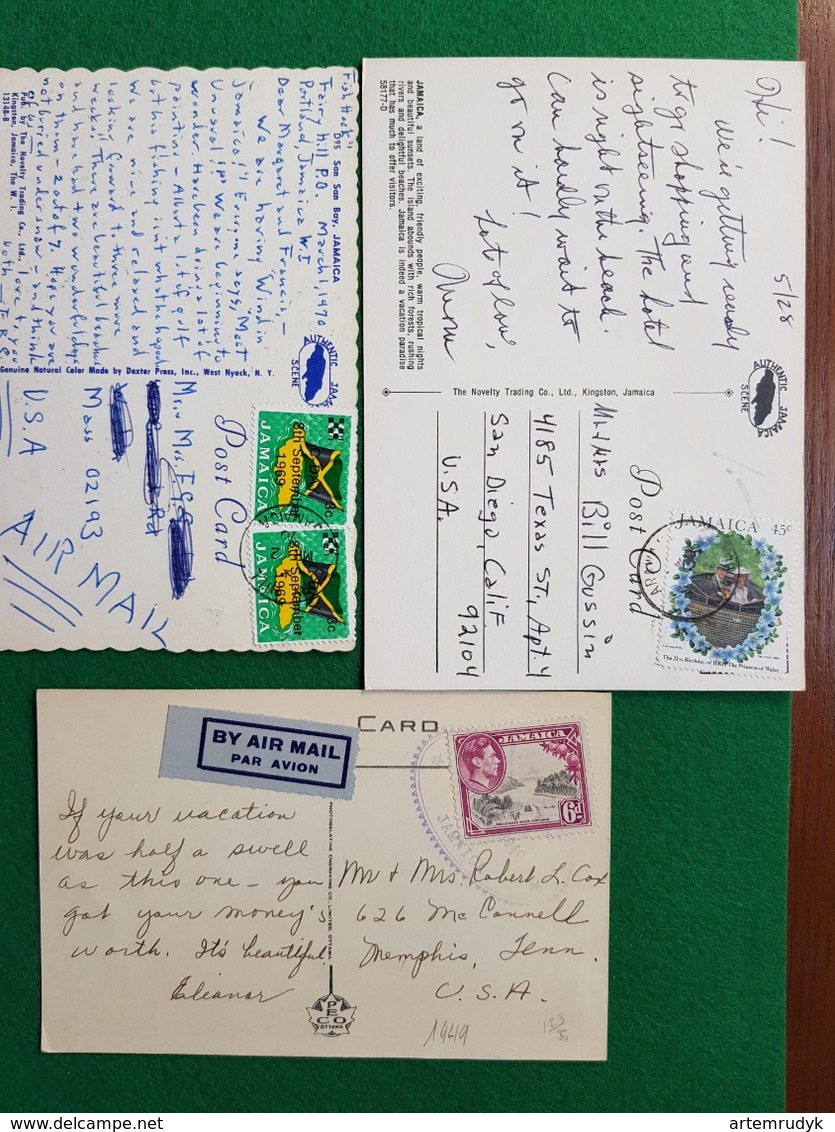 "Fish Hook"
D95 San San Bay JAMAICA
Fairy Hill P.O. March 1, 1970
Portland, Jamaica W.I
Dear Margaret and Francis, -
We are having "Windin'
Jamaica"! Everyone says, "Most
Unusual!" We are beginning to
wonder. Have been doing a lot of
painting - Allen a lot of golf
but the fishing isn't what he hoped
We are and relaxed and
looking forward to three more
weeks! There are beautiful beaches
and have had two wonderful days
on them 2 out of 7. Hope you are
not buried under snow - and think
of us. Love to you
both -
Pub. by The Novelty Trading Co., Ltd.,
Kingston, Jamaica, The W. I.
13148-B
Genuine Natural Color Made by Dexter Press, Inc., West Nyack, N. Y.
AUTHENTIC JAMAICA
SCENE
Post Card
Mr & Mrs
Mass 02193
U.S.A
AIR MAIL
JAMAICA
8th September
1969
C-DAY
3c
JAMAICA
8th September
1969
3c
5/28
Hi!
We're getting ready
to go shopping and
sightseeing. The hotel
is right on the beach.
Can hardly wait to
go in it!
Lots of love,
Mom
JAMAICA, a land of exciting, friendly people, warm tropical nights
and beautiful sunsets. The island abounds with rich forests, rushing
rivers and delightful beaches. Jamaica is indeed a vacation paradise
that has much to offer visitors.
58177-D
The Novelty Trading Co., Ltd., Kingston, Jamaica
AUTHENTIC JAMAICA
SCENE
Post Card
Mr & Mrs Bill Gussin
4185 Texas ST., Apt. 4
San Diego, Calif
92104
U.S.A.
JAMAICA 45c
The 21st Birthday of HRH The Princess of Wales
CARD
BY AIR MAIL
PAR AVION
JAMAICA
6d
JAMAICA
If your vacation
was half a swell
as this one - you
got your money's
worth. It's beautiful.
Eleanor
PHOTOGELATINE ENGRAVING CO., LIMITED, OTTAWA
PECO
OTTAWA
Mr & Mrs. Robert L. Cox
626 McConnell
Memphis, Tenn.
U.S.A.
1949
artemrudyk